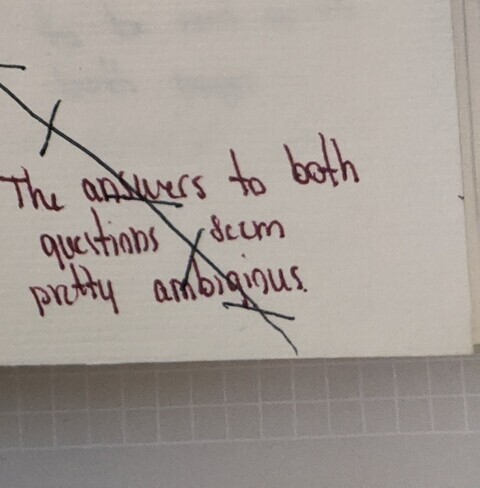 The answers to both
questions seem
pretty ambiginus.